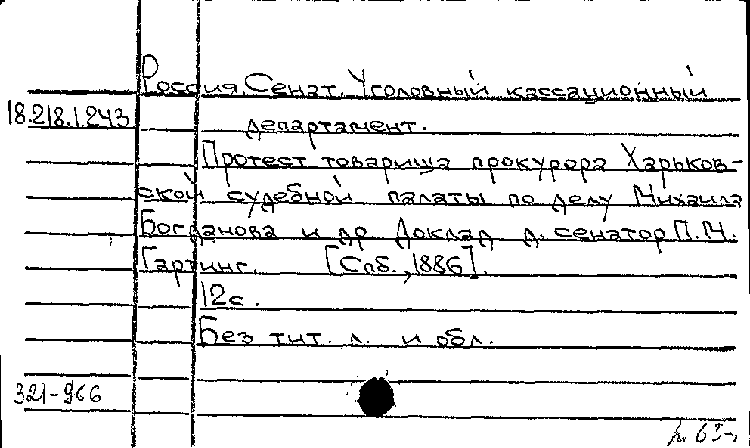 Россия Сенат. Уголовный кассационный
18.218.1.243
департамент.
Протест товарища прокурора Харьков-
ской судебной палаты по делу Михаила
Богданова и др Доклад д. сенатор П.М.
Гартинг. [Спб., 1886].
12с.
Без тит. л. и обл.
321-966